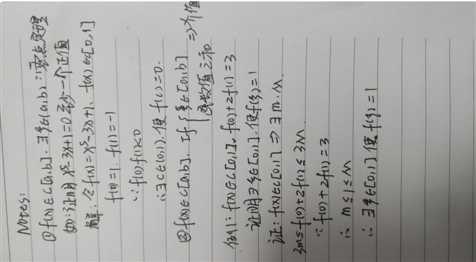 Notes:
① f(x)∈C[a,b]. ∃ξ∈(a,b) ∵零点定理
如:证明 x⁵-3x+1=0 至少一个正值
解:令 f(x)=x⁵-3x+1, f(x)∈[0,1]
f(0)=1, f(1)=-1
∵ f(0)f(1)<0
∴∃c∈(0,1), 使 f(c)=0.
② f(x)∈C[a,b]. If { ξ∈[a,b] ⇒介值
函数值之和
例1: f(x)∈C[0,1], f(0)+2f(1)=3
证明∃ξ∈[0,1], 使f(ξ)=1
证: f(x)∈C[0,1] ⇒ ∃ m.M
3m≤f(0)+2f(1)≤3M
∵ f(0)+2f(1)=3
∴ m≤1≤M
∴ ∃ξ∈[0,1] 使 f(ξ)=1